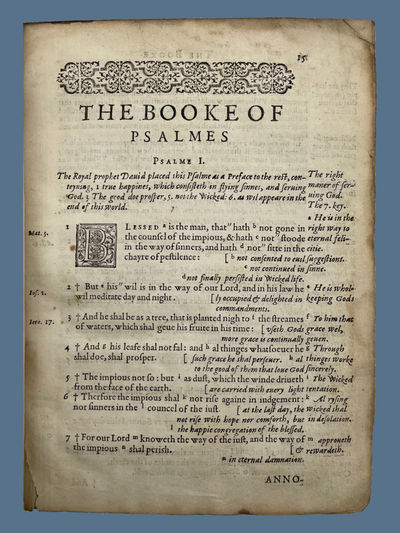 15
THE BOOKE OF
PSALMES
PSALME I.
The Royal prophet Dauid placed this Psalme as a Preface to the rest, con-
teyning, 1 true happines, which consisteth in flying sinnes, and seruing
God. 3 The good doe prosper, 5. not the Wicked: 6. as wil appeare in the
end of this world.
The right
maner of ser-
uing God.
The 7. key.
1 BLESSED a is the man, that" hath b not gone in
the counsel of the impious, & hath c not" stoode
in the way of sinners, and hath d not" sitte in the
chayre of pestilence: [ b not consented to euil suggestions.
c not continued in sinne.
d not finally persisted in Wicked life.
a He is in the
right way to
eternal feli-
citie.
Mat. 5.
2 † But e his" wil is in the way of our Lord, and in his law he
wil meditate day and night. [ly occupied & delighted in
commandments.
e He is whol-
keeping Gods
Ios. 2.
3 † And he shal be as a tree, that is planted nigh to f the streames
of waters, which shal geue his fruite in his time: [ vseth Gods
more grace is continually geuen.
f To him that
grace wel,
Iere. 17.
4 † And g his leafe shal not fal: and h al things whatsoeuer he
shal doe, shal prosper. [ such grace he shal perseuer. h al
to the good of them that loue God sincerely.
g Through
things worke
5 † The impious not so: but i as dust, which the winde driueth
from the face of the earth. [are carried with euery light
i The Wicked
tentation.
6 † Therfore the impious shal k not rise againe in iudgement:
nor sinners in the l councel of the iust. [ at the last day, the
not rise with hope nor comforth, but
l the happie congregation of the blessed.
k Al rysing
Wicked shal
in desolation.
7 † For our Lord m knoweth the way of the iust, and the way of
the impious n shal perish.
m approueth
[ & rewardeth.
n in eternal damnation.
ANNO-